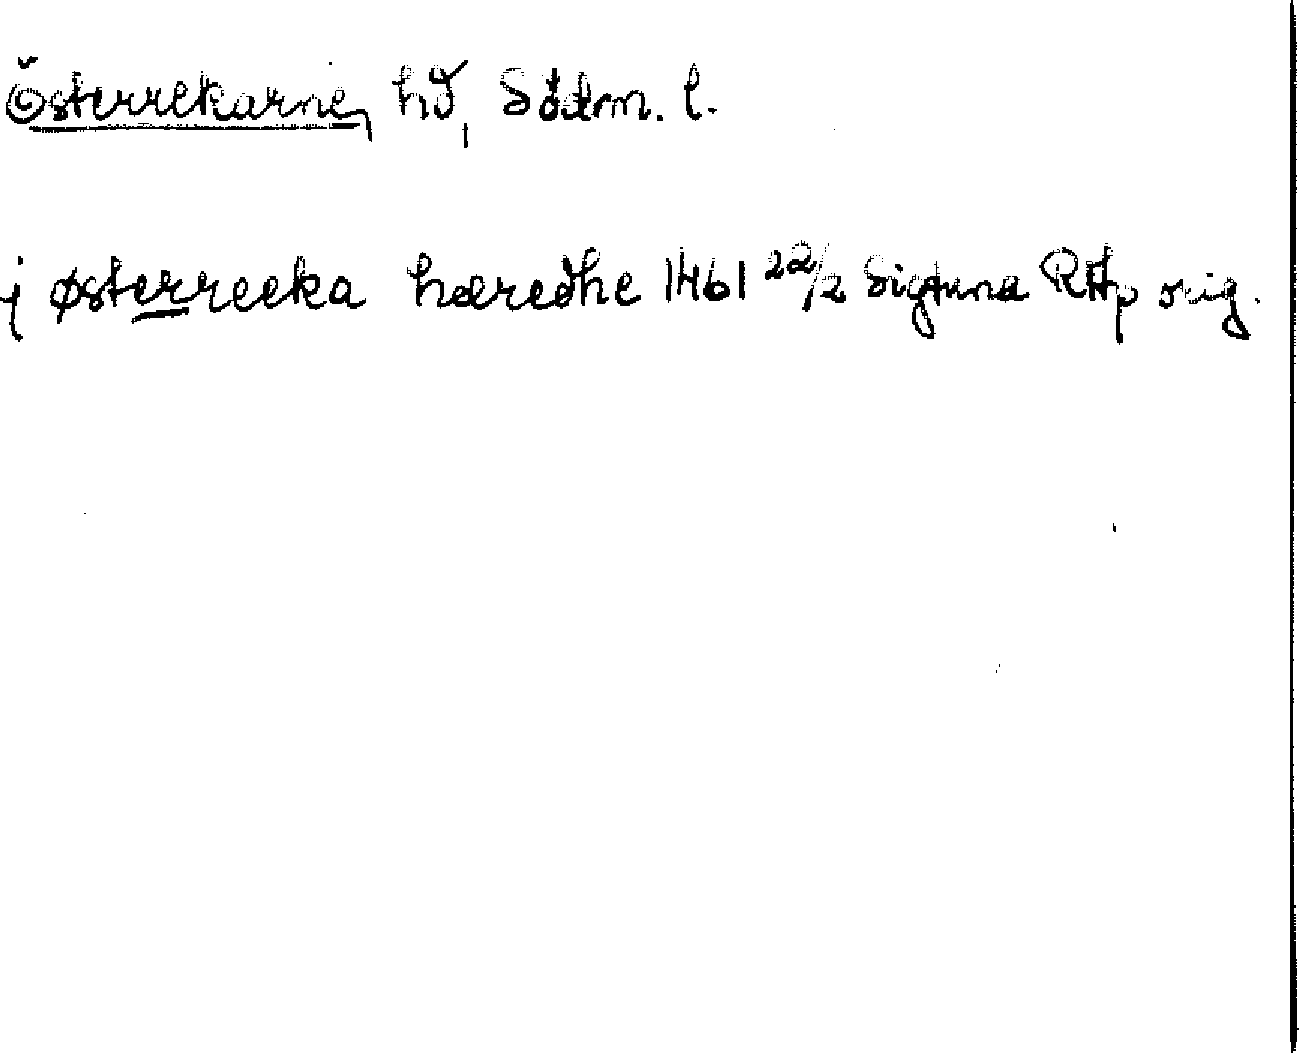 Österrekarne, hd, Södm. l.
j østerreeka hæredhe 1461 22/2 Sigtuna RAp orig.